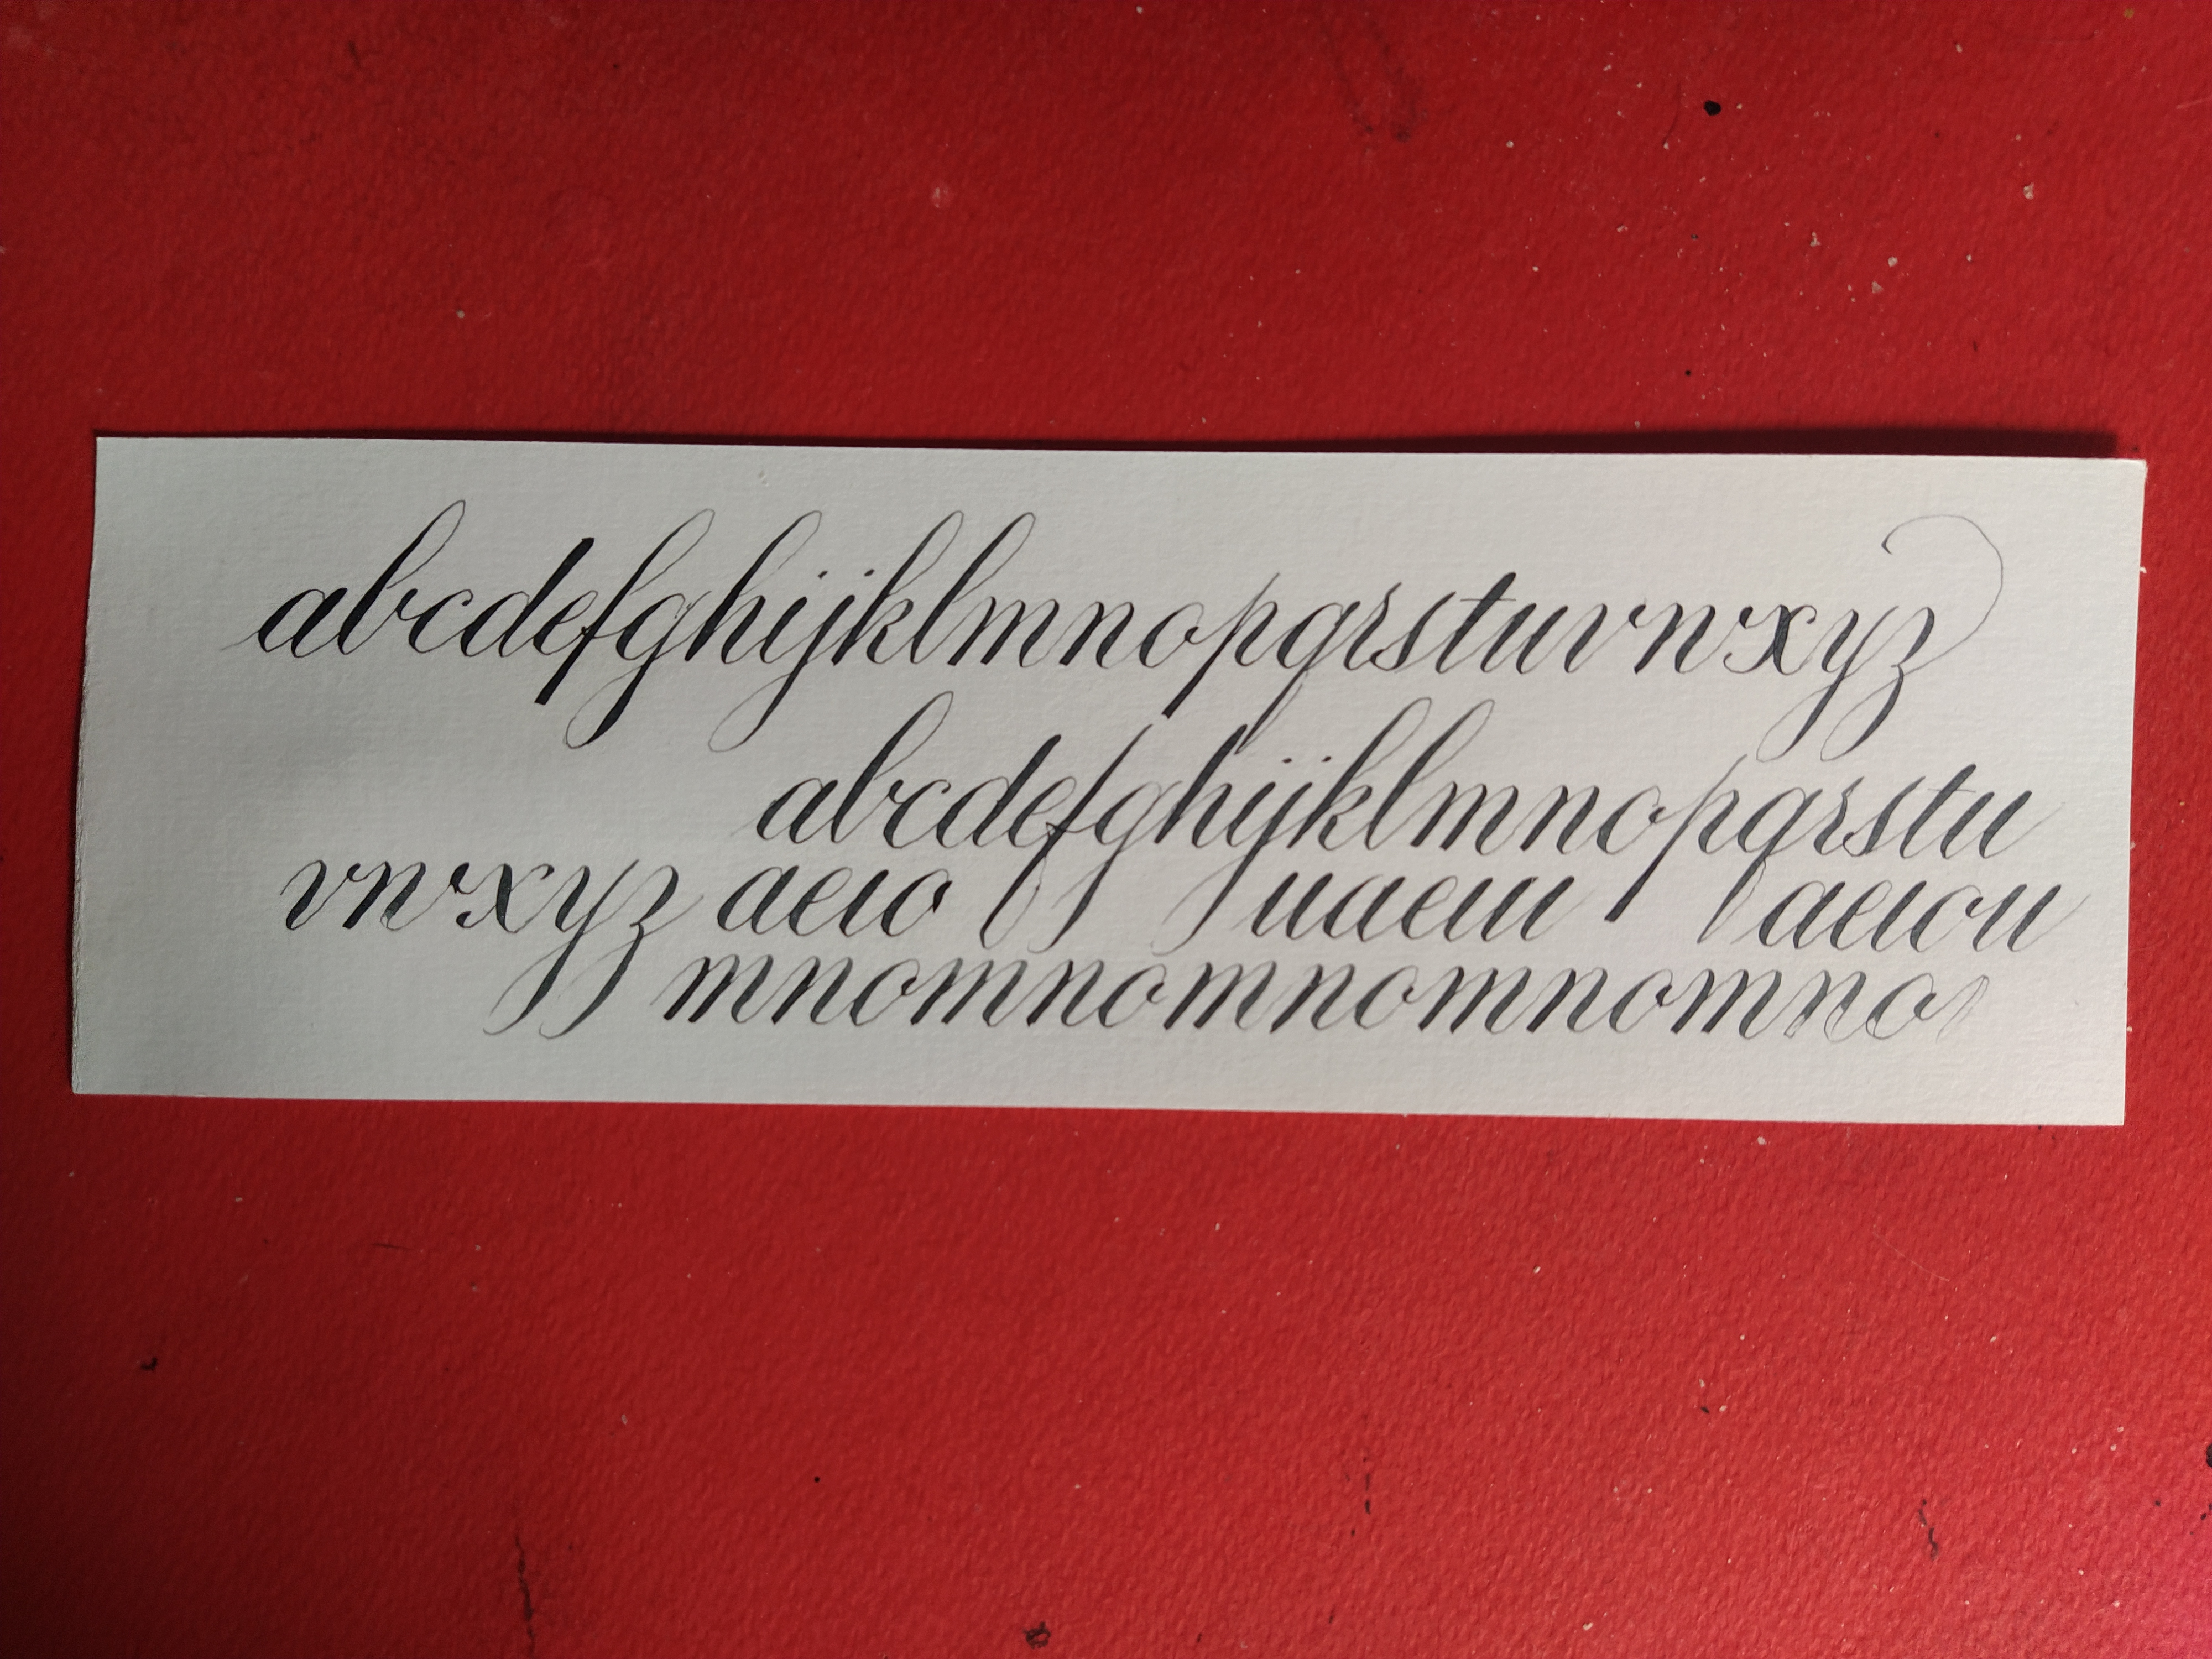 abcdefghijklmnopqrstuvwxyz
abcdefghijklmnopqrstu
vwxyz aeio uaeiu aeiou
mnomnomnomnomno